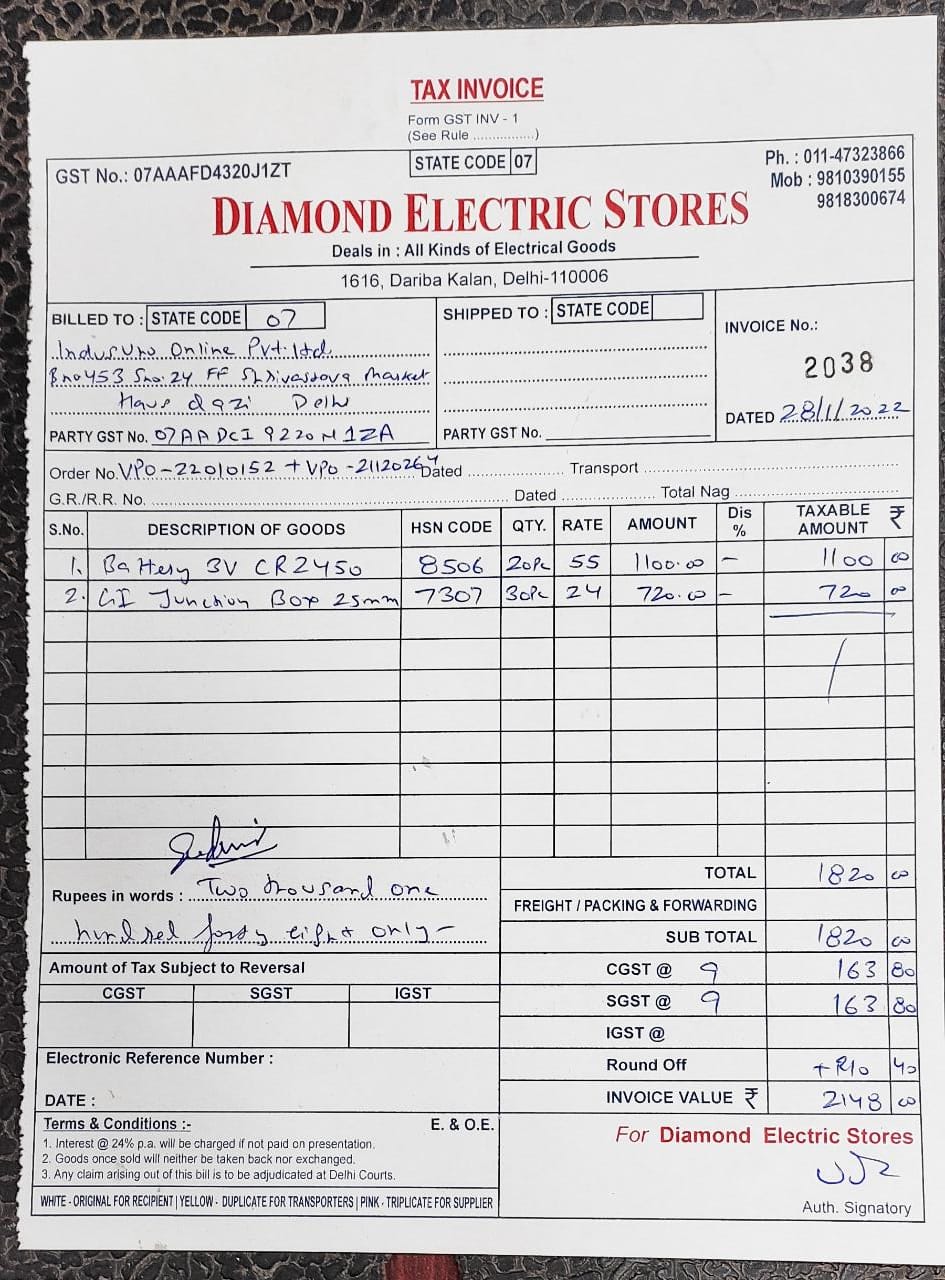 TAX INVOICE
Form GST INV - 1
(See Rule ................)
GST No.: 07AAAFD4320J1ZT
STATE CODE 07
Ph. : 011-47323866
Mob : 9810390155
9818300674
DIAMOND ELECTRIC STORES
Deals in : All Kinds of Electrical Goods
1616, Dariba Kalan, Delhi-110006
BILLED TO : STATE CODE 07
IndusUno Online Pvt. Ltd
Bno 453 Sno. 24 FF Shrivastava Market
Haus Delhi
PARTY GST No. 07AADCI9220M1ZA
SHIPPED TO : STATE CODE
PARTY GST No.
INVOICE No.:
2038
DATED 28/1/2022
Order No. VPO-22010152 + VPO-21120264 Dated Transport
G.R./R.R. No. Dated Total Nag
S.No. DESCRIPTION OF GOODS HSN CODE QTY. RATE AMOUNT Dis % TAXABLE AMOUNT ₹
1. Battery 3V CR2450 8506 20Pc 55 1100.00 - 1100 00
2. GI Junction Box 25mm 7307 30Pc 24 720.00 - 720 00
TOTAL 1820 00
Rupees in words : Two thousand one
hundred forty eight only-
FREIGHT / PACKING & FORWARDING
SUB TOTAL 1820 00
Amount of Tax Subject to Reversal
CGST SGST IGST
CGST @ 9 163 80
SGST @ 9 163 80
IGST @
Electronic Reference Number :
Round Off + R/o 40
DATE :
INVOICE VALUE ₹ 2148 00
Terms & Conditions :- E. & O.E.
1. Interest @ 24% p.a. will be charged if not paid on presentation.
2. Goods once sold will neither be taken back nor exchanged.
3. Any claim arising out of this bill is to be adjudicated at Delhi Courts.
For Diamond Electric Stores
Auth. Signatory
WHITE - ORIGINAL FOR RECIPIENT | YELLOW - DUPLICATE FOR TRANSPORTERS | PINK - TRIPLICATE FOR SUPPLIER